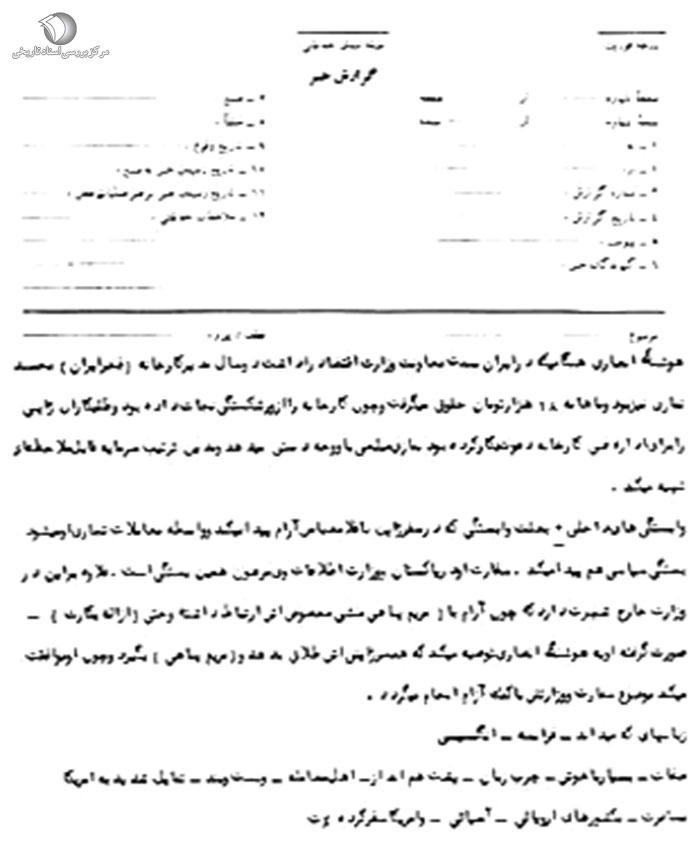 مرکز بررسی اسناد تاریخی
گزارش خبر
صفحه شماره از صفحه
نسخه شماره از نسخه
۱ ـ به
۲ ـ از
۳ ـ شماره گزارش
۴ ـ تاریخ گزارش
۵ ـ پیوست
۶ ـ گیرندگان خبر
۷ ـ منبع
۸ ـ منشأ
۹ ـ تاریخ وقوع
۱۰ ـ تاریخ رسیدن خبر به منبع
۱۱ ـ تاریخ رسیدن خبر به رهبر عملیات
۱۲ ـ ملاحظات حفاظتی
موضوع
هوشنگ انصاری هنگامیکه در ایران سمت معاونت وزارت اقتصاد را داشت دو سال مدیر کارخانه (فخر ایران) محمد
نمازی نیز بود و ماهانه ۱۸ هزار تومان حقوق میگرفت و چون کارخانه را از ورشکستگی نجات داده بود و طلبکاران ژاپنی
را برای اداره فنی کارخانه دعوت بکار کرده بود نمازی مبلغی با و وجه دستی میدهد و بدین ترتیب سرمایه قابل ملاحظه‌ای
تهیه میکند .
وابستگی‌های داخلی + بعلت وابستگی که در سفر ژاپن با غلامعباس آرام پیدا میکند و واسطه معاملات تجاری او میشود
بستگی سیاسی هم پیدا میکند . سفارت او در پاکستان و وزارت اطلاعات وی مرهون همین بستگی است . علاوه بر این در
وزارت خارجه شهرت دارد که چون آرام با ( مریم پناهی منشی مخصوص اش ارتباط داشته و حتی (ازاله بکارت ) ـ
صورت گرفته او به هوشنگ انصاری توصیه میکند که همسر ژاپنی اش طلاق بدهد و (مریم پناهی ) بگیرد و چون او موافقت
میکند موضوع سفارت و وزارتش با کمک آرام انجام میگردد .
زبانهای که میداند ـ فرانسه ـ انگلیسی
صفات ـ بسیار باهوش ـ چرب زبان ـ پشت هم انداز ـ اهل معامله ـ و بست و بند ـ تمایل شدید به امریکا
مسافرت ـ بکشورهای اروپائی ـ آسیائی ـ و امریکا سفر کرده